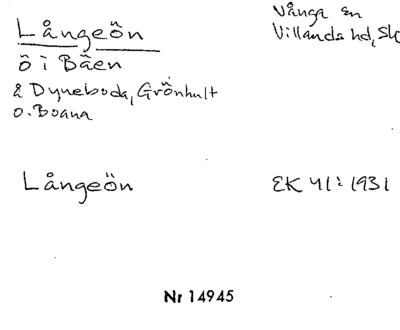 Långeön
Vånga sn
Villands hd, Sk
ö i Bäen
å Dyneboda, Grönhult
o. Boana
Långeön
EK 41: 1931
Nr 14945